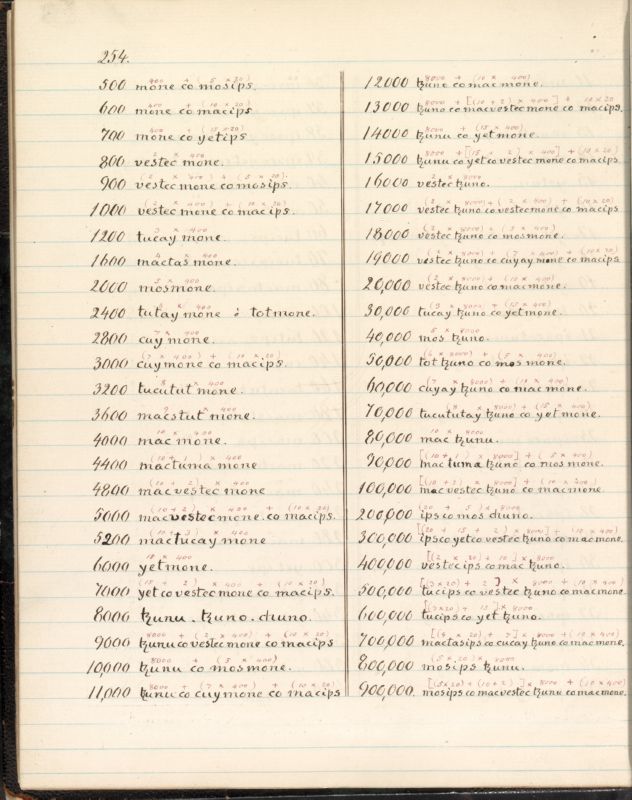 254.
400 + (5 x 20)
500 mone co mosips.
400 + (10 x 20)
600 mone co macips
400 + (15 x 20)
700 mone co yetips
2 x 400
800 vestec mone.
(2 x 400) + (5 x 20)
900 vestec mone co mosips.
(2 x 400) + (10 x 20)
1000 vestec mone co macips.
3 x 400
1200 tucay mone.
4 x 400
1600 mactas mone.
5 x 400
2000 mosmone.
x 400
2400 tutay mone ó totmone.
7 x 400
2800 cuy mone.
(7 x 400) + (10 x 20)
3000 cuy mone co macips.
8 x 400
3200 tucutut mone.
9 x 400
3600 macstut mone.
10 x 400
4000 mac mone.
(10 + 1) x 400
4400 mactuma mone
(10 + 2) x 400
4800 macvestec mone
(10 + 2) x 400 + (10 x 20)
5000 macvestec mone. co macips.
(10 + 3) x 400
5200 mactucay mone
15 x 400
6000 yetmone.
(15 + 2) x 400 + (10 x 20)
7000 yet co vestec mone co macips.
8000 tzunu. tzuno. duno.
8000 + (2 x 400) + (10 x 20)
9000 tzunu co vestec mone co macips
8000 + (5 x 400)
10,000 tzunu co mosmone.
8000 + (7 x 400) + (10 x 20)
11,000 tzunu co cuymone co macips
8000 + (10 x 400)
12000 tzuno co mac mone.
8000 + [(10 + 2) x 400] + 10 x 20
13000 tzuno co macvestec mone co macips.
8000 + (15 x 400)
14000 tzunu co yetmone.
8000 + [(15 + 2) x 400] + (10 x 20)
15000 tzunu co yet co vestec mone co macips
2 x 8000
16000 vestec tzuno.
(2 x 8000) + (2 x 400) + (10 x 20)
17000 vestec tzuno co vestecmone co macips
(2 x 8000) + (5 x 400)
18000 vestec tzuno co mosmone.
(2 x 8000) + (7 x 400) + (10 x 20)
19000 vestec tzuno co cuyay mone co macips
(2 x 8000) + (10 x 400)
20,000 vestec tzuno co macmone.
(3 x 8000) + (15 x 400)
30,000 tucay tzuno co yetmone.
5 x 8000
40,000 mos tzuno.
(6 x 8000) + (5 x 400)
50,000 tot tzuno co mos mone.
(7 x 8000) + (10 x 400)
60,000 cuyay tzuno co mac mone.
x 8000) + (15 x 400)
70,000 tucututay tzuno co yet mone.
10 x 8000
80,000 mac tzunu.
[(10 + 1) x 8000] + (5 x 400)
90,000 mac tuma tzuno co mos mone.
[(10 + 2) x 8000] + (10 x 400)
100,000 mac vestec tzuno co macmone.
(20 + 5) x 8000
200,000 ips co mos duno.
[(20 + 15 + 2) x 8000] + (10 x 400)
300,000 ips co yet co vestec tzuno co mac mone.
[(2 x 20) + 10] x 8000
400,000 vestec ips co mac tzuno.
[(3 x 20) + 2] x 8000 + (10 x 400)
500,000 tucips co vestec tzuno co macmone.
[(3 x 20) + 15] x 8000
600,000 tucips co yet tzuno.
[(4 x 20) + 7] x 8000 + (10 x 400)
700,000 mactasips co cucay tzuno co mac mone.
(5 x 20) x 8000
800,000 mosips tzunu.
[(5 x 20) + (10 + 2)] x 8000 + (10 x 400)
900,000. mosips co macvestec tzunu co macmone.